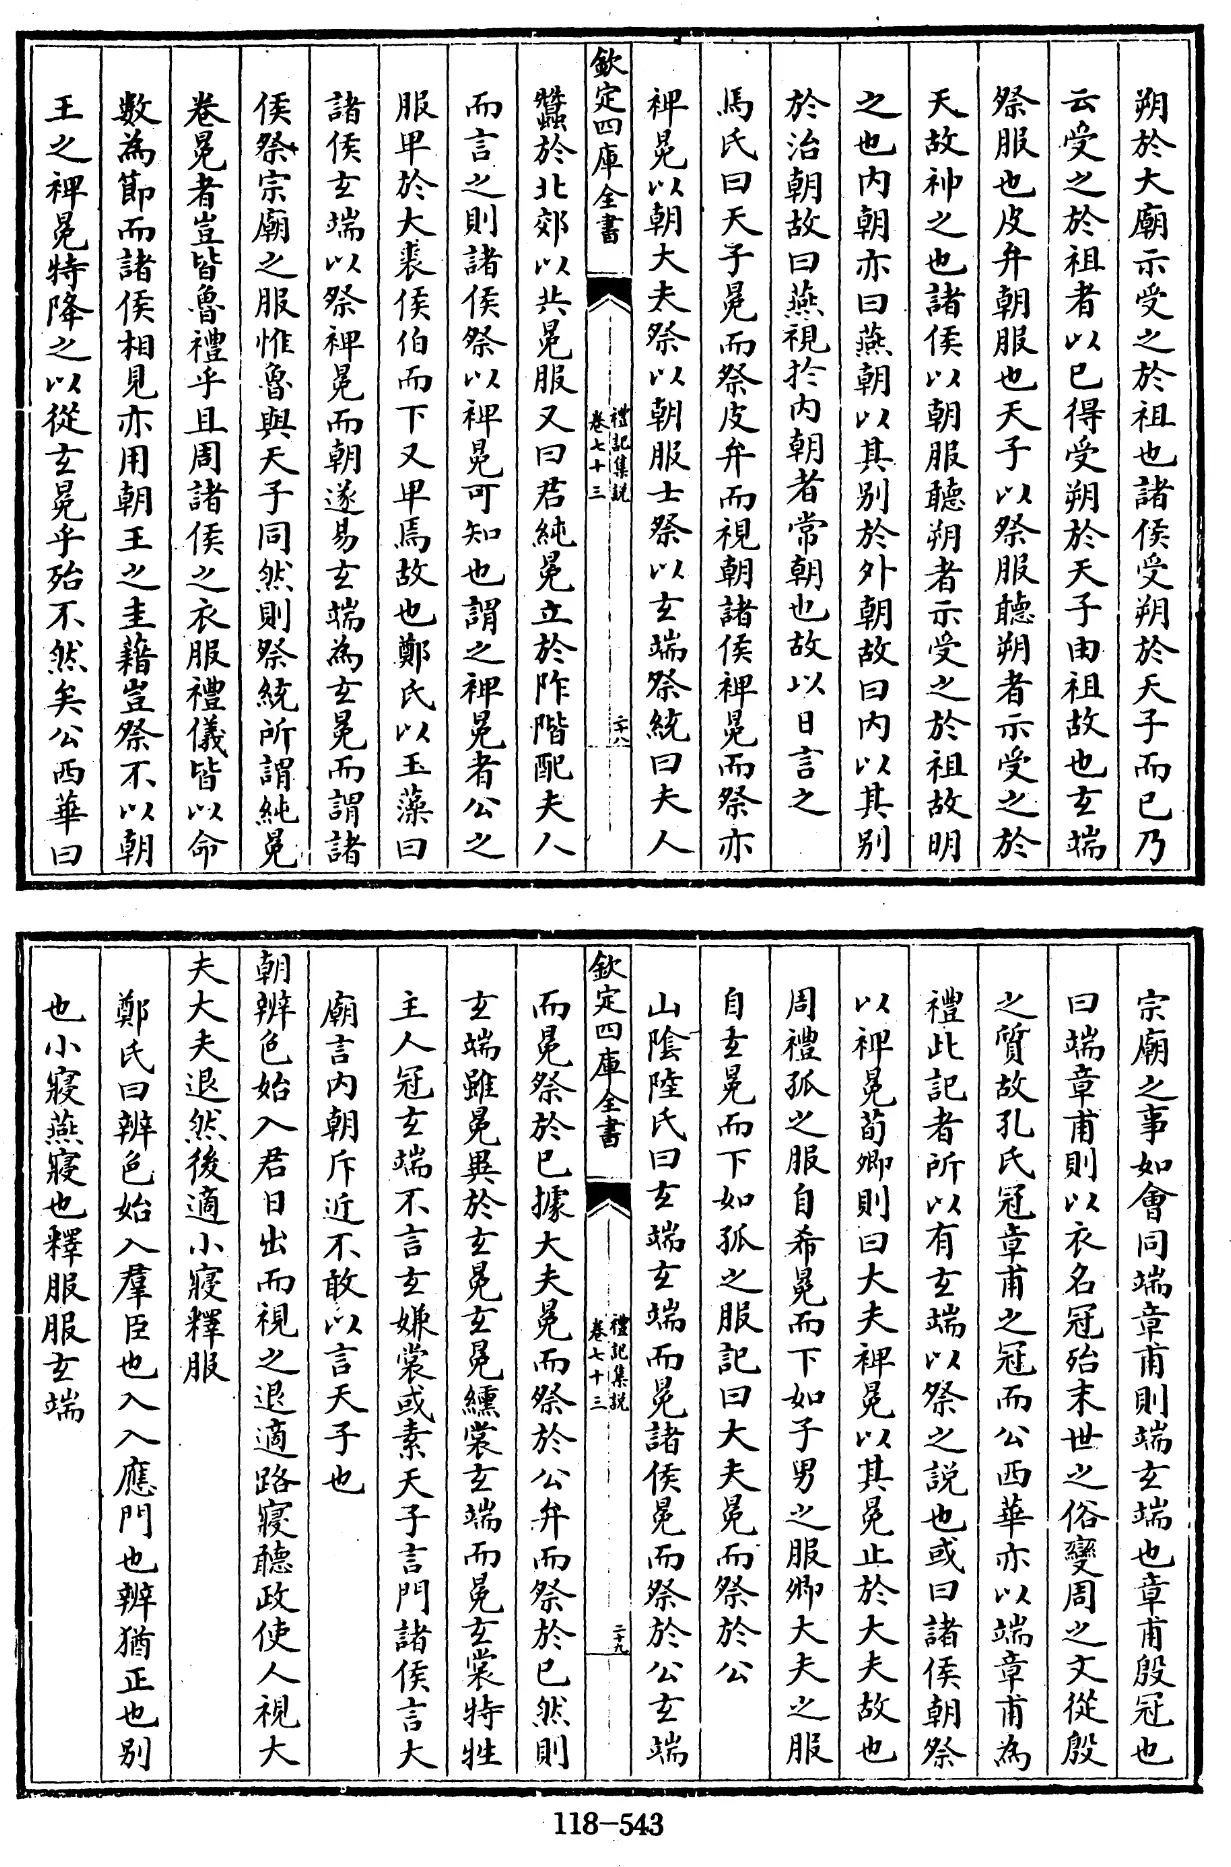 朔於大廟示受之於祖也諸侯受朔於天子而已乃
云受之於祖者以已得受朔於天子由祖故也玄端
祭服也皮弁朝服也天子以祭服聽朔者示受之於
天故神之也諸侯以朝服聽朔者示受之於祖故明
之也内朝亦曰燕朝以其别於外朝故曰内以其别
於治朝故曰燕視於内朝者常朝也故以日言之
馬氏曰天子冕而祭皮弁而視朝諸侯裨冕而祭亦
裨冕以朝大夫祭以朝服士祭以玄端祭統曰夫人
欽定四庫全書
禮記集説
卷七十三
二十八
蠶於北郊以共冕服又曰君純冕立於阼階配夫人
而言之則諸侯祭以裨冕可知也謂之裨冕者公之
服卑於大裘侯伯而下又卑焉故也鄭氏以玉藻曰
諸侯玄端以祭裨冕而朝遂易玄端為玄冕而謂諸
侯祭宗廟之服惟魯與天子同然則祭統所謂純冕
卷冕者豈皆魯禮乎且周諸侯之衣服禮儀皆以命
數為節而諸侯相見亦用朝王之圭藉豈祭不以朝
王之裨冕特降之以從玄冕乎殆不然矣公西華曰
宗廟之事如會同端章甫則端玄端也章甫殷冠也
曰端章甫則以衣名冠殆末世之俗變周之文從殷
之質故孔氏冠章甫之冠而公西華亦以端章甫為
禮此記者所以有玄端以祭之説也或曰諸侯朝祭
以裨冕荀卿則曰大夫裨冕以其冕止於大夫故也
周禮孤之服自希冕而下如子男之服卿大夫之服
自玄冕而下如孤之服記曰大夫冕而祭於公
山陰陸氏曰玄端玄端而冕諸侯冕而祭於公玄端
欽定四庫全書
禮記集説
卷七十三
二十九
而冕祭於已據大夫冕而祭於公弁而祭於已然則
玄端雖冕異於玄冕玄冕纁裳玄端而冕玄裳特牲
主人冠玄端不言玄嫌裳或素天子言門諸侯言大
廟言内朝斥近不敢以言天子也
朝辨色始入君日出而視之退適路寢聽政使人視大
夫大夫退然後適小寢釋服
鄭氏曰辨色始入羣臣也入入應門也辨猶正也别
也小寢燕寢也釋服服玄端
118-543